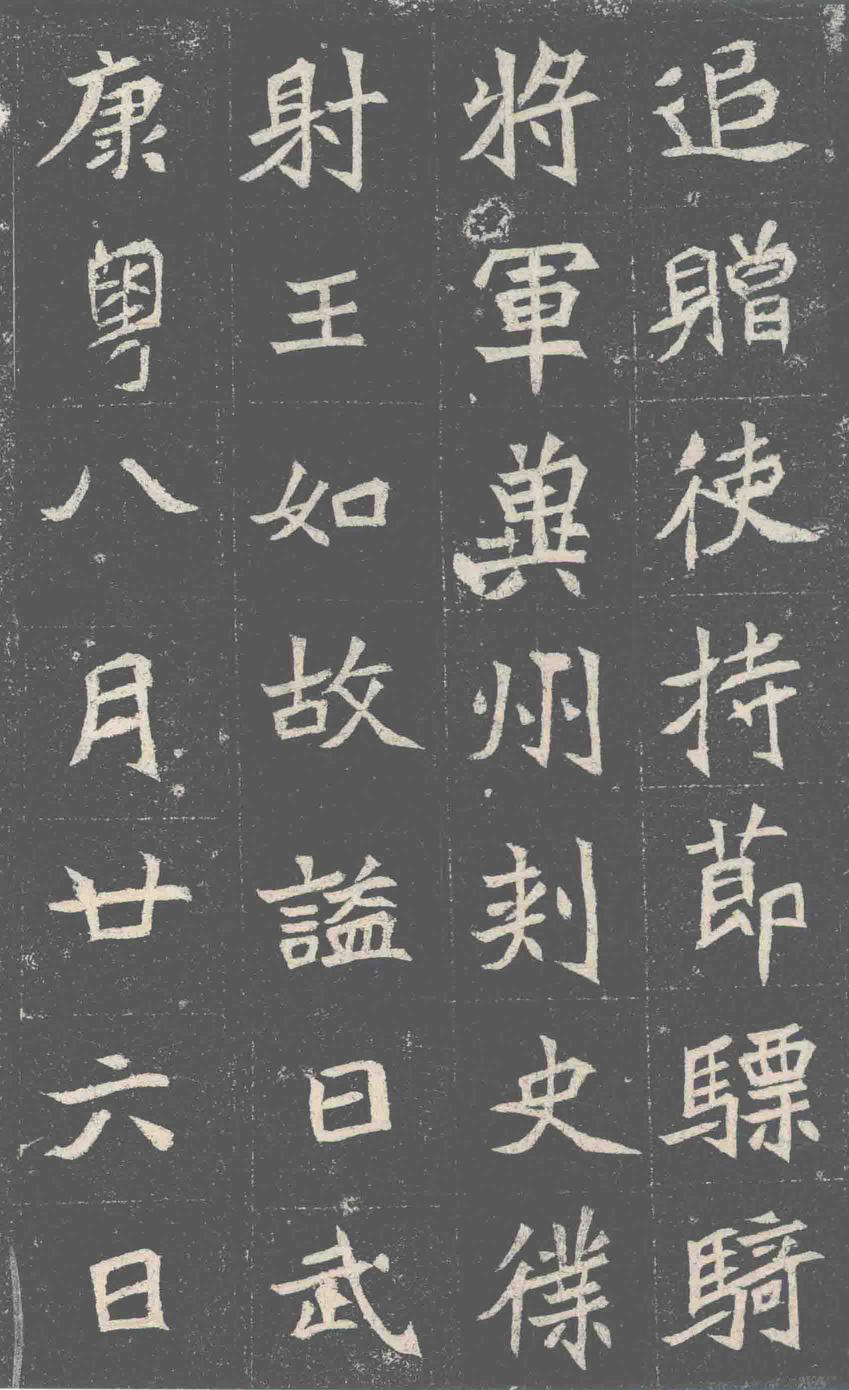 追贈使持節驃騎
將軍冀州刺史僕
射王如故謚曰武
康粵八月廿六日